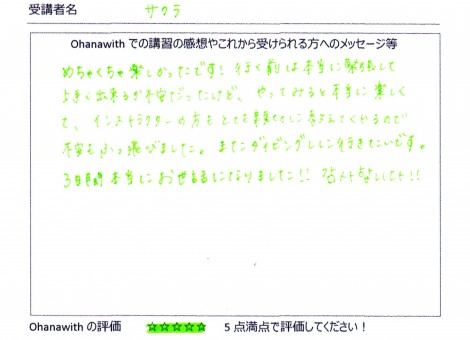 受講者名 サクラ
Ohanawith での講習の感想やこれから受けられる方へのメッセージ等
めちゃくちゃ楽しかったです！行く前は本当に緊張して
上手く出来るか不安だったけど、やってみると本当に楽しく
て、インストラクターの方もとても親切に教えてくれるので
不安もふっ飛びました。またダイビングしに行きたいです。
3日間本当にお世話になりました!!
Ohanawith の評価 ☆☆☆☆☆ 5 点満点で評価してください！